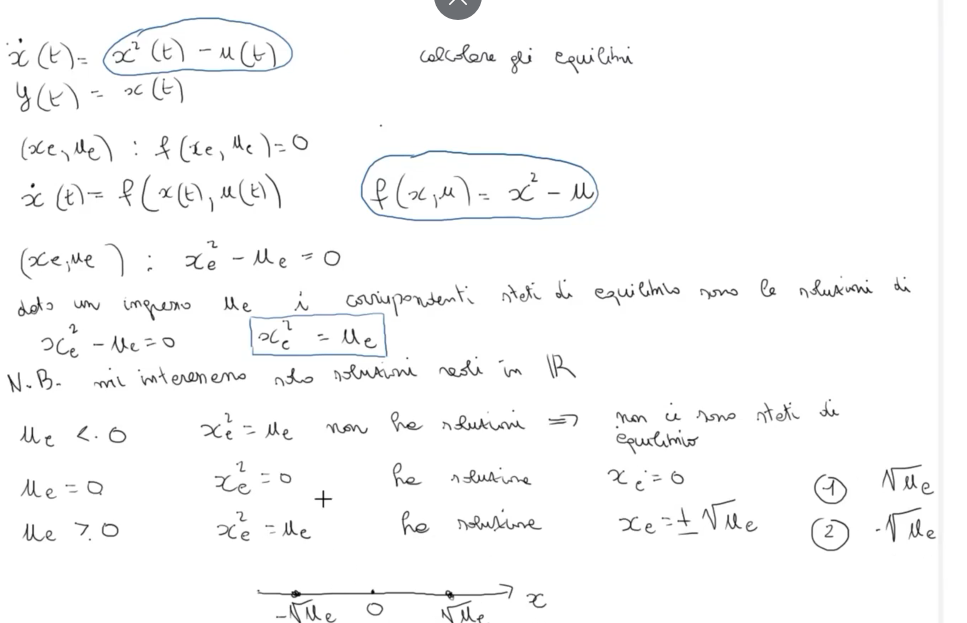 ẋ(t) = x²(t) - u(t) calcolare gli equilibri
y(t) = x(t)
(xe, ue) : f(xe, ue) = 0
ẋ(t) = f(x(t), u(t)) f(x, u) = x² - u
(xe, ue) : xe² - ue = 0
dato un ingresso ue i corrispondenti stati di equilibrio sono le soluzioni di
xe² - ue = 0 xe² = ue
N.B. mi interessano solo soluzioni reali in ℝ
ue < 0 xe² = ue non ha soluzioni ⇒ non ci sono stati di equilibrio
ue = 0 xe² = 0 ha soluzione xe = 0 ① √ue
ue > 0 xe² = ue ha soluzione xe = ± √ue ② -√ue
-√ue 0 √ue x